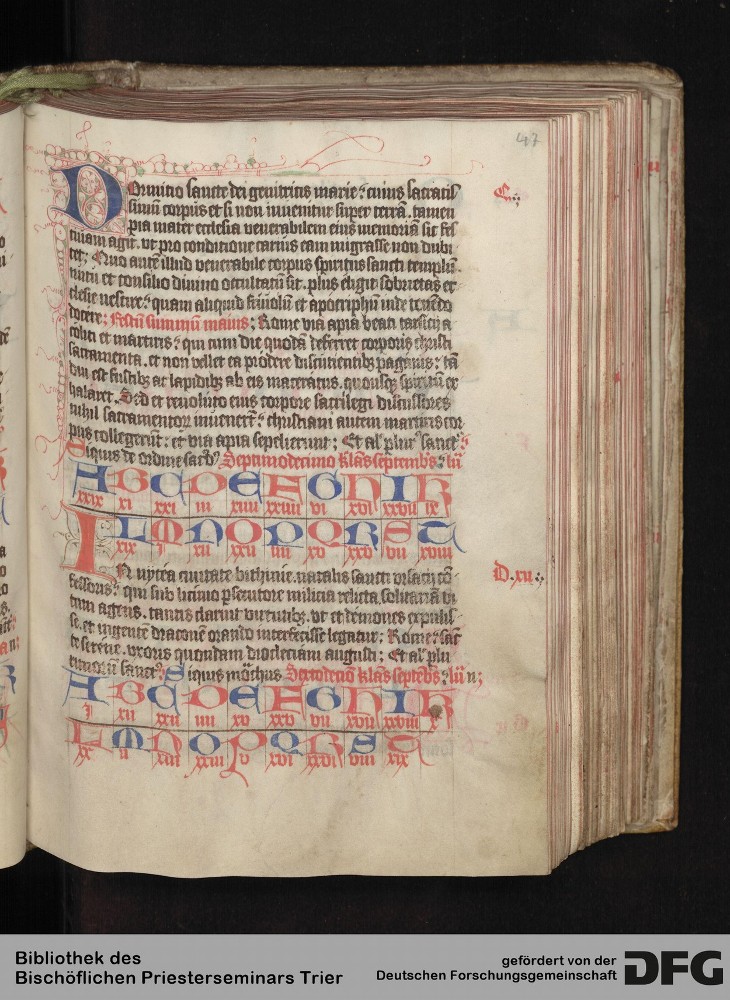 47
Dormitio sancte dei genitricis marie : cuius sacratis
simū corpus et si non inuenitur super terrā . tamen
pia mater ecclesia venerabilem eius memoriam sic fes
tiuam agit . vt pro conditione carnis eam migrasse non dubi
tet ; Quo autē illud venerabile corpus spiritus sancti templū
nutu et consilio diuino occultatū sit . plus eligit sobrietas ec
clesie nescire : quam aliquid friuolū et apocriphū inde tenēdo
docere ; Festū summū maius ; Rome via apia beati tarsicij a
coliti et martiris : qui cum die quodā deferret corporis christi
sacramenta . et non vellet ea prodere discutientibȝ paganis : tā
diu est fustibȝ ac lapidibȝ ab eis maceratus . quousqȝ spiritū ex
halaret . Sed et reuoluto eius corpore sacrilegi discussores
nihil sacramentorū inuenerūt : christiani autem martiris cor
pus collegerūt : et via apia sepelierunt ; Et al' plur' sanct'
Siquis de ordine Septimodecimo kl'as septembr̄s : lū
A B C D E F G H I K
xxix xi xxi iii xiiii xxiiii vi xvi xxvii ix
L M N O P Q R S T
xix i xii xxii iiii xv xxv vii xviii
D . xii
IN nycea ciuitate bithinie . natalis sancti vrsacij cō
fessoris : qui sub licinio psecutore milicia relicta . solitariā vi
tam agens . tantis claruit virtutibȝ . vt et demones expulis
se . et ingentē draconē orando interfecisse legatur ; Rome . sāc
te serene . vxoris quondam diocleciani augusti ; Et al' plu
rimorū sanct' Siquis Sextodecīo kl'as septēbr̄s : lūn ;
A B C D E F G H I K
i xii xxii iiii xv xxv vii xvii xxviii x
L M N O P Q R S T
xx ii xiii xxiii v xvi xxvi viii xix
Bibliothek des
Bischöflichen Priesterseminars Trier
gefördert von der
Deutschen Forschungsgemeinschaft
DFG